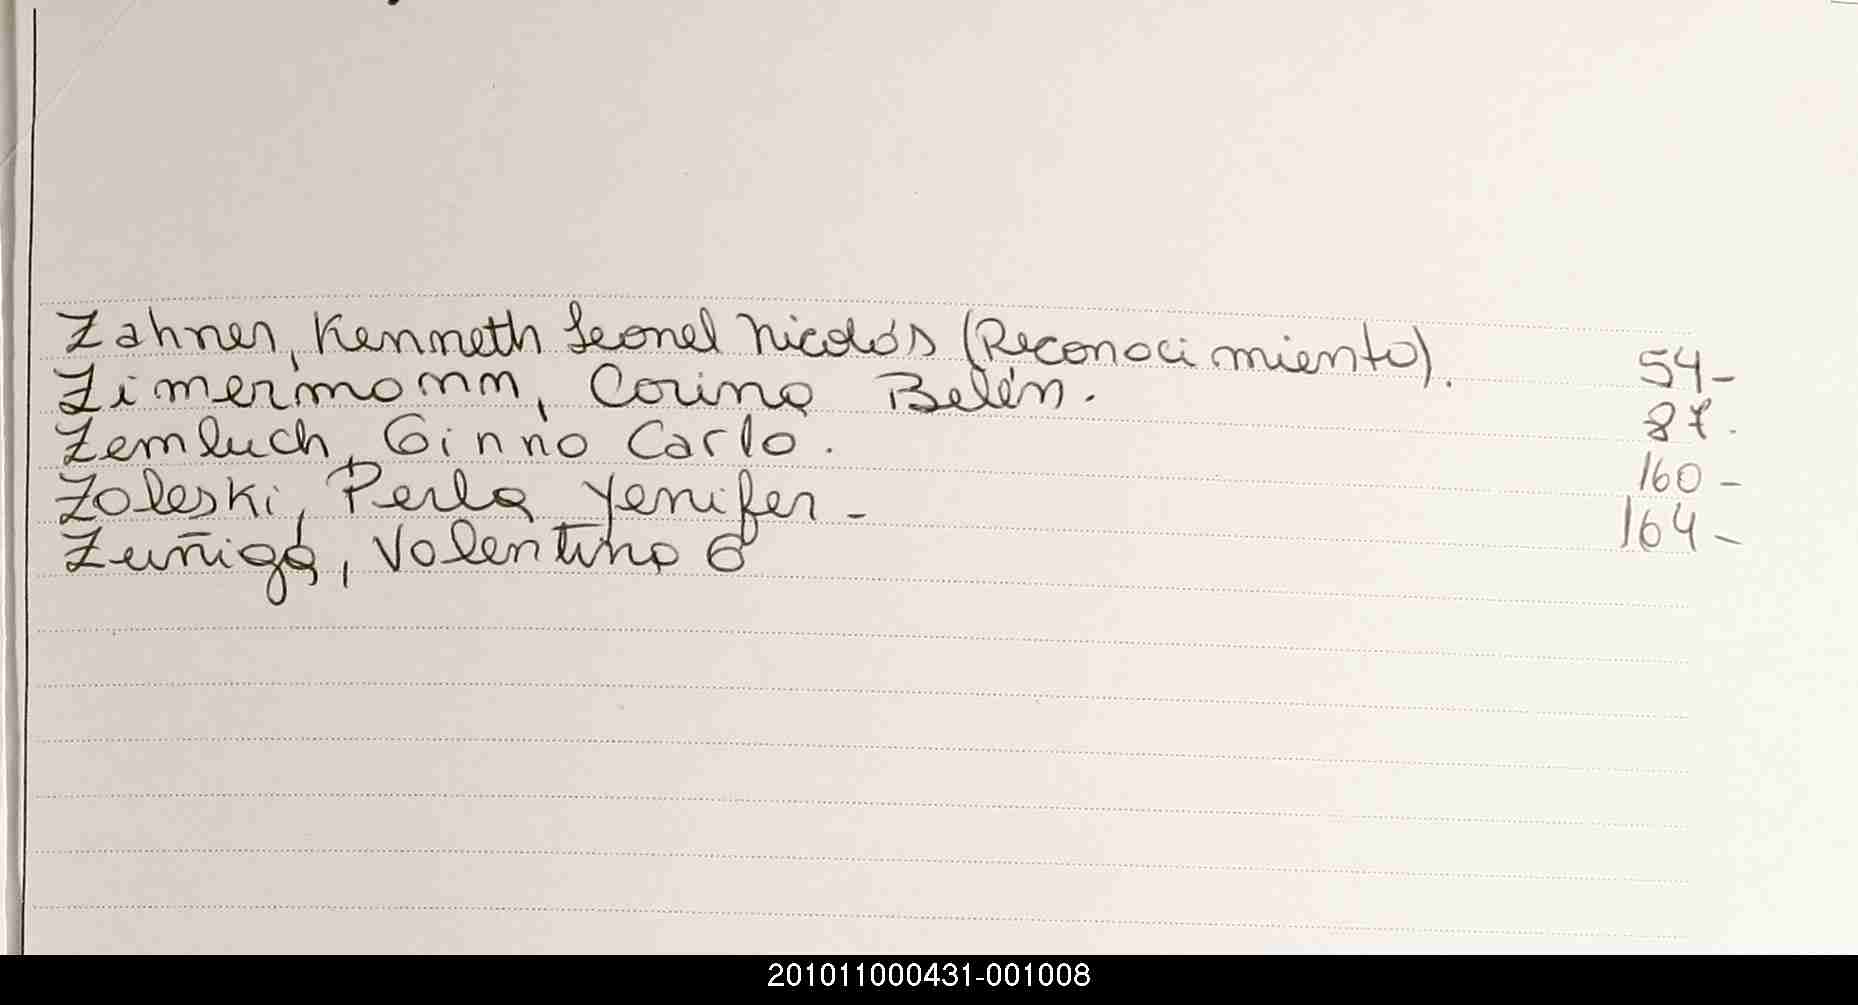 Zahner, Kenneth Leonel Nicolás (Reconocimiento). 54-
Zimermann, Corina Belén. 87.
Zemluch, Ginno Carlo. 160-
Zoleski, Perla Yenifer - 164-
Zuñiga, Valentino
201011000431-001008